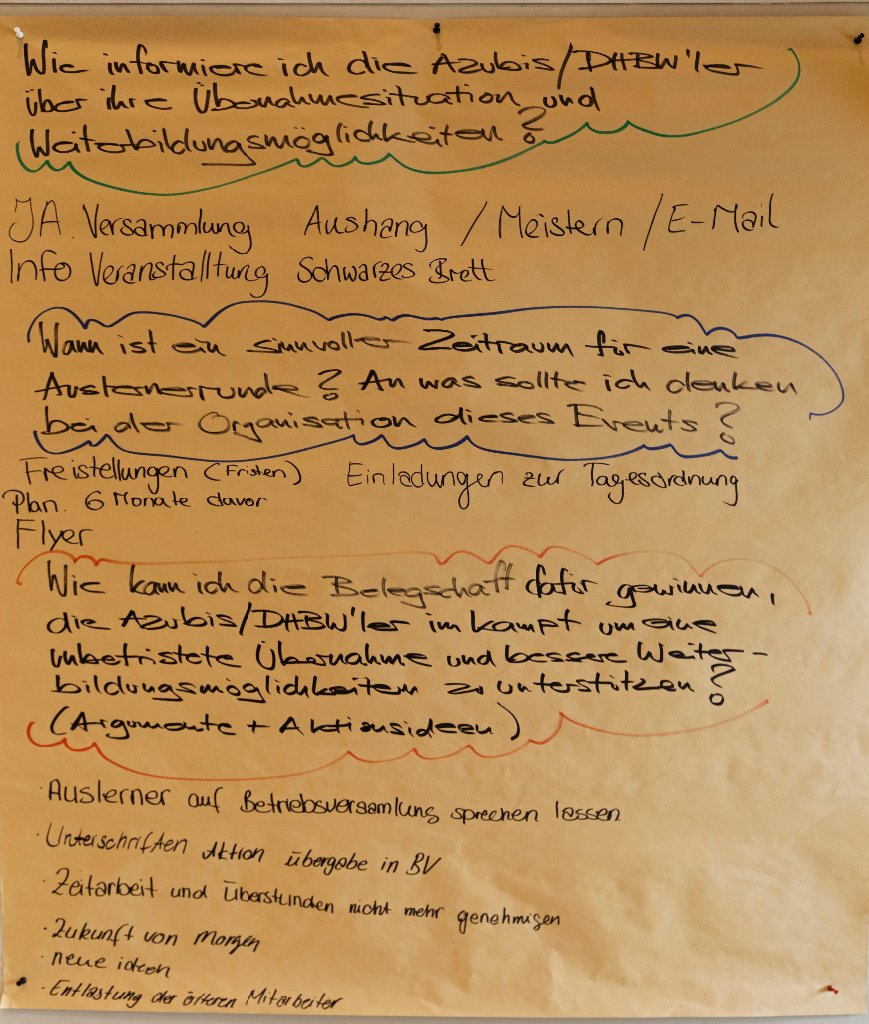 Wie informiere ich die Azubis/DHBW'ler
über ihre Übernahmesituation und
Weiterbildungsmöglichkeiten?
JA Versammlung Aushang / Meistern / E-Mail
Info Veranstalltung Schwarzes Brett
Wann ist ein sinnvoller Zeitraum für eine
Auslernerrunde? An was sollte ich denken
bei der Organisation dieses Events?
Freistellungen (Fristen) Einladungen zur Tagesordnung
Plan. 6 Monate davor
Flyer
Wie kann ich die Belegschaft dafür gewinnen,
die Azubis/DHBW'ler im Kampf um eine
unbefristete Übernahme und bessere Weiter-
bildungsmöglichkeiten zu unterstützen?
(Argumente + Aktionsideen)
· Auslerner auf Betriebsversamlung sprechen lassen
· Unterschriften Aktion übergabe in BV
· Zeitarbeit und Überstunden nicht mehr genehmigen
· Zukunft von Morgen
· neue ideen
· Entlastung der älteren Mitarbeiter